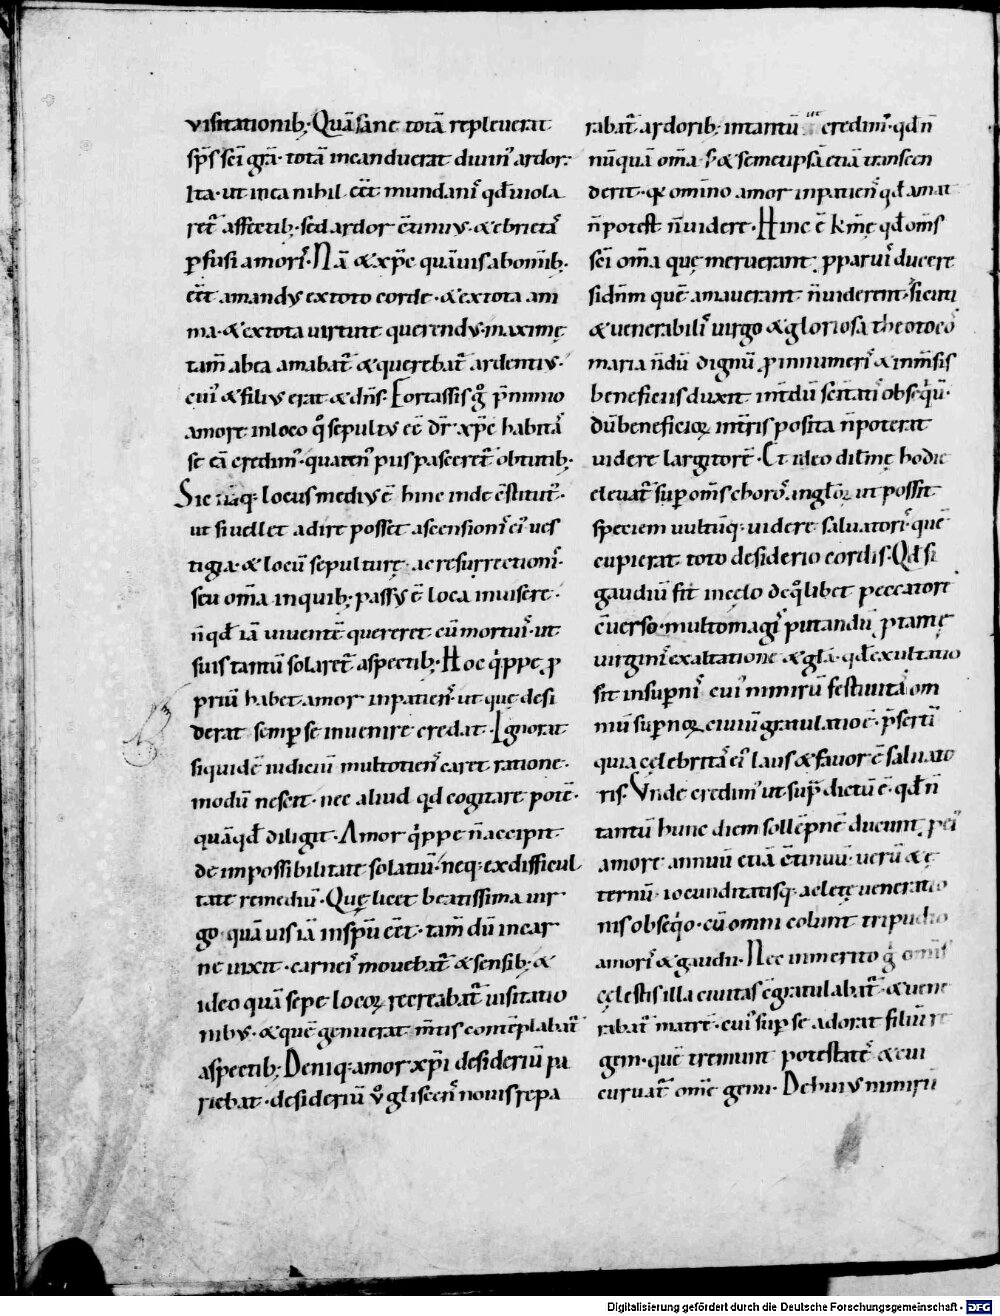 visitationib; Quā sane totā repleuerat
sp̄s sc̄i gr̄a· totā incanduerat diuin᾽ ardor·
Ita· ut in ea nihil eēt mundani᾽ qd̄ uiola
ret᾽ affectib;· sed ardor c̄tinuus· & ebrietā᾽
p̱fusi amori᾽· Nā & xp̄c quāuis ab om̄ib;·
eēt amandus ex toto corde· & ex tota ani
ma· & ex tota uirtute querendus· maxime
tam̄ ab ea amabat᾽ & querebat᾽ ardentius·
cui᾽ & filius erat & dn̄s· Fortassis g̊ p̄ nimio
amore in loco q̊ sepultus eē dr̄ xp̄c habitā᾽
se eā credim᾽· quaten᾽ piis pasceret᾽ obtutib;·
Sic naq· locus medius ē hinc inde c̄stitut᾽·
ut si uellet adire posset ascensioni᾽ ei᾽ ues
tigia· & locū sepulturę· ac resurrectioni᾽·
seu om̄a in quib; passus ē loca inuisere·
n̄ qd̄ iā uiuentē quereret cū mortui᾽· ut
suis tantū solaret᾽ aspectib;· Hoc q̓ppe ꝓ
priū habet amor inpatien᾽ ut quę desi
derat semp̱ se inuenire credat· Ignorat
siquidē iudiciū multotien᾽ caret ratione·
modū nescit· nec aliud qd̄ cogitare potē·
quā qd̄ diligit· Amor q̓ppe n̄ accipit
de impossibilitate solatiū· neq· ex difficul
tate remediū· Quę licet beatissima uir
go quāuis iā in sp̄u eēt· tam̄ dū in car
ne uixit· carnei᾽ mouebat᾽ & sensib;· &
ideo quā sepe locoꝝ recreabat᾽ uisitatio
nibus· & quē genuerat m̄tis contēplabat᾽
aspectib; Deniq· amor xp̄i desideriū pa
riebat· desideriū ů gliscen᾽ nouis repa
rabat᾽ ardorib; intantū credim᾽· qd̄ n̄
nūquā om̄a ſ· & semetipsā etiā transcen
derit· & omīno amor inpatien᾽ qd̄ amat
n̄ potest n̄ uidere· Hinc ē kr̄mę qd̄ om̄s
sc̄i om̄a quę meruerant ꝓ paruī᾽ ducere
si dn̄m quē amauerant n̄ uiderent· sicuti
& uenerabili᾽ uirgo & gloriosa theotoco᾽
maria n̄dū dignū ꝓ innumeri᾽ & inm̄sis
beneficiis duxit int̄dū sc̄itati᾽ obseq̓ū·
dū beneficioꝝ int̄ris posita n̄ poterat
uidere largitorē· Et ideo dilm̄ę hodie
eleuat᾽ sup̱ om̄s choro᾽ angl̄oꝝ ut possit
speciem uultūq· uidere saluatori᾽· quē
cupierat toto desiderio cordis· Qd̄ si
gaudiū fit in cęlo de q̊libet peccatore
c̄uerso· multo magi᾽ putandū ꝓ tamę
uirgini᾽ exaltatione & gl̄a· qd̄ exultatio
sit in sup̱ni᾽ cui᾽ nimirū festiuita᾽ om
niū sup̱noꝝ ciuiū gratulatio ē· p̄sertī
quia cęlebritā᾽ ei᾽ laus & fauor ē saluato
ris· Vnde credim᾽ ut sup̄ dictū ē· qd̄ n̄
tantū hunc diem sollēpnē ducunt
amore annuū etiā c̄tinuū· uerū & ę
ternū· iocunditatisq· ac lętę ueneratio
nis obseq̓o· cū omni colunt tripudio
amori᾽ & gaudii· Nec inmerito g̊ om̄is
cęlestis illa ciuitas c̄gratulabat᾽· & uene
rabat᾽ matrē· cui᾽ sup̱ se adorat filiū re
gem· quē tremunt potestate᾽ & cui
curuat᾽ om̄e genu· Debitus nimirū
Digitalisierung gefördert durch die Deutsche Forschungsgemeinschaft - DFG